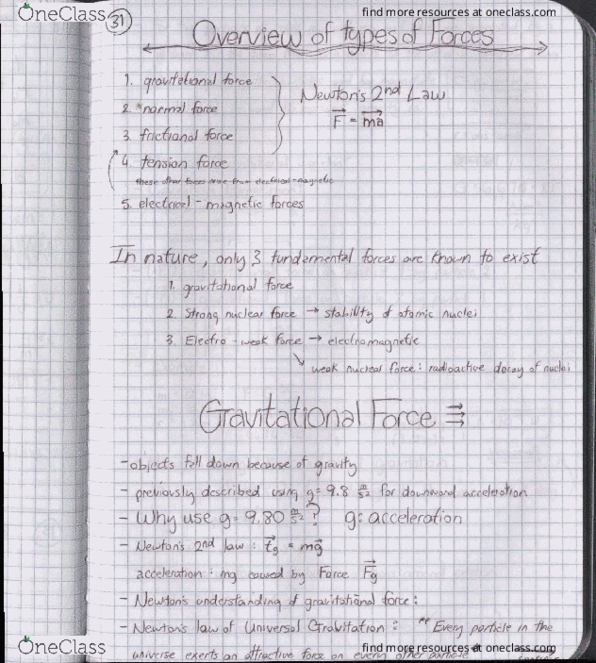 OneClass
find more resources at oneclass.com
31
Overview of types of Forces
1. gravitational force
2. *normal force
3. frictional force
4. tension force
these other forces from electrical-magnetic
5. electrical - magnetic forces
Newton's 2nd Law
F = ma
In nature, only 3 fundamental forces are known to exist
1. gravitational force
2. Strong nuclear force → stability of atomic nuclei
3. Electro-weak force → electromagnetic
↘ weak nuclear force: radioactive decay of nuclei
Gravitational Force
-objects fall down because of gravity
- previously described using g= 9.8 m/s² for downward acceleration
- Why use g= 9.80 m/s²? g: acceleration
- Newton's 2nd law: = mg
acceleration: mg caused by Force Fg
- Newton's understanding of gravitational force:
- Newton's law of Universal Gravitation: "Every particle in the
universe exerts an attractive force on every other particle
OneClass
find more resources at oneclass.com